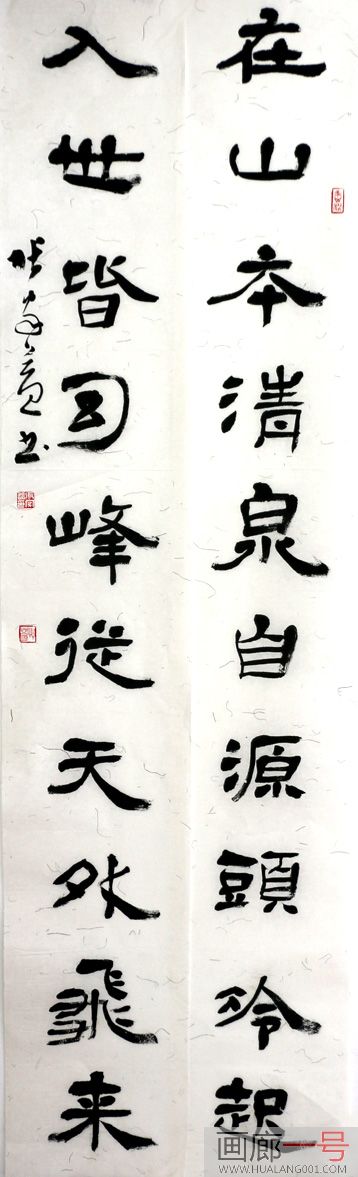 在山本清泉自源頭冷起
入世皆幻峰從天外飛来
画廊一号
WWW.HUALANG001.COM